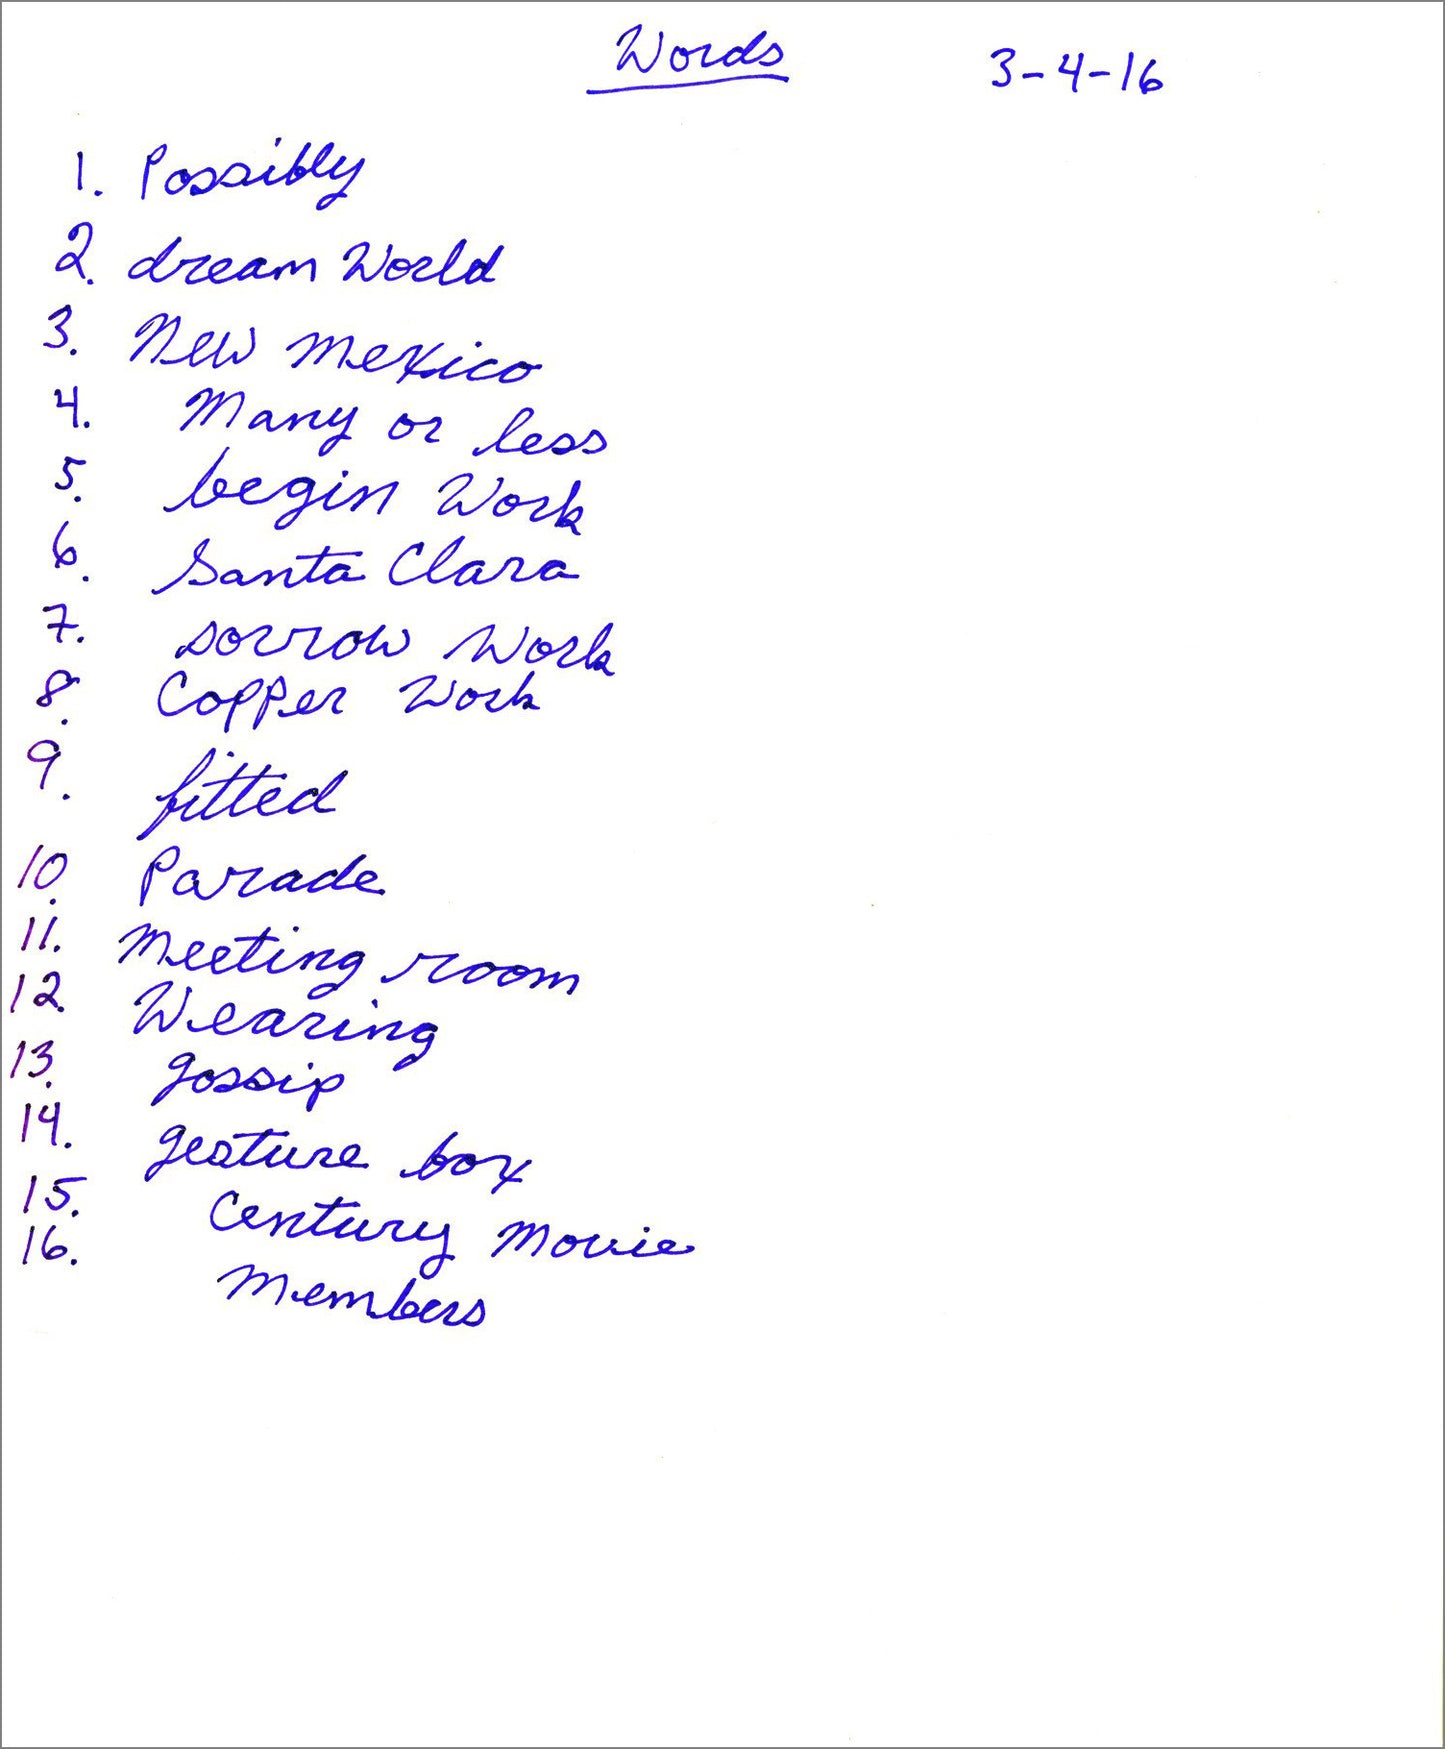 Words 3-4-16
1. Possibly
2. dream World
3. New Mexico
4. Many or less
5. begin Work
6. Santa Clara
7. sorrow Work
8. Copper Work
9. fitted
10. Parade
11. Meeting room
12. Wearing
13. gossip
14. gesture box
15. Century Movie
16. Members